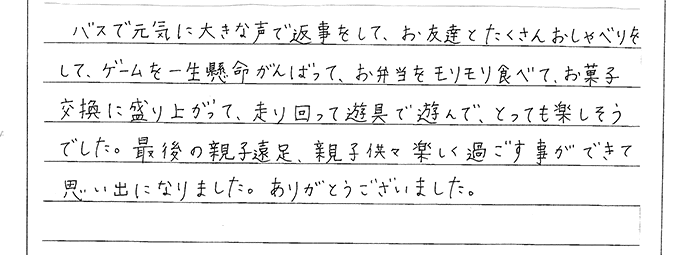 バスで元気に大きな声で返事をして、お友達とたくさんおしゃべりを
して、ゲームを一生懸命がんばって、お弁当をモリモリ食べて、お菓子
交換に盛り上がって、走り回って遊具で遊んで、とっても楽しそう
でした。最後の親子遠足、親子供々楽しく過ごす事ができて
思い出になりました。ありがとうございました。